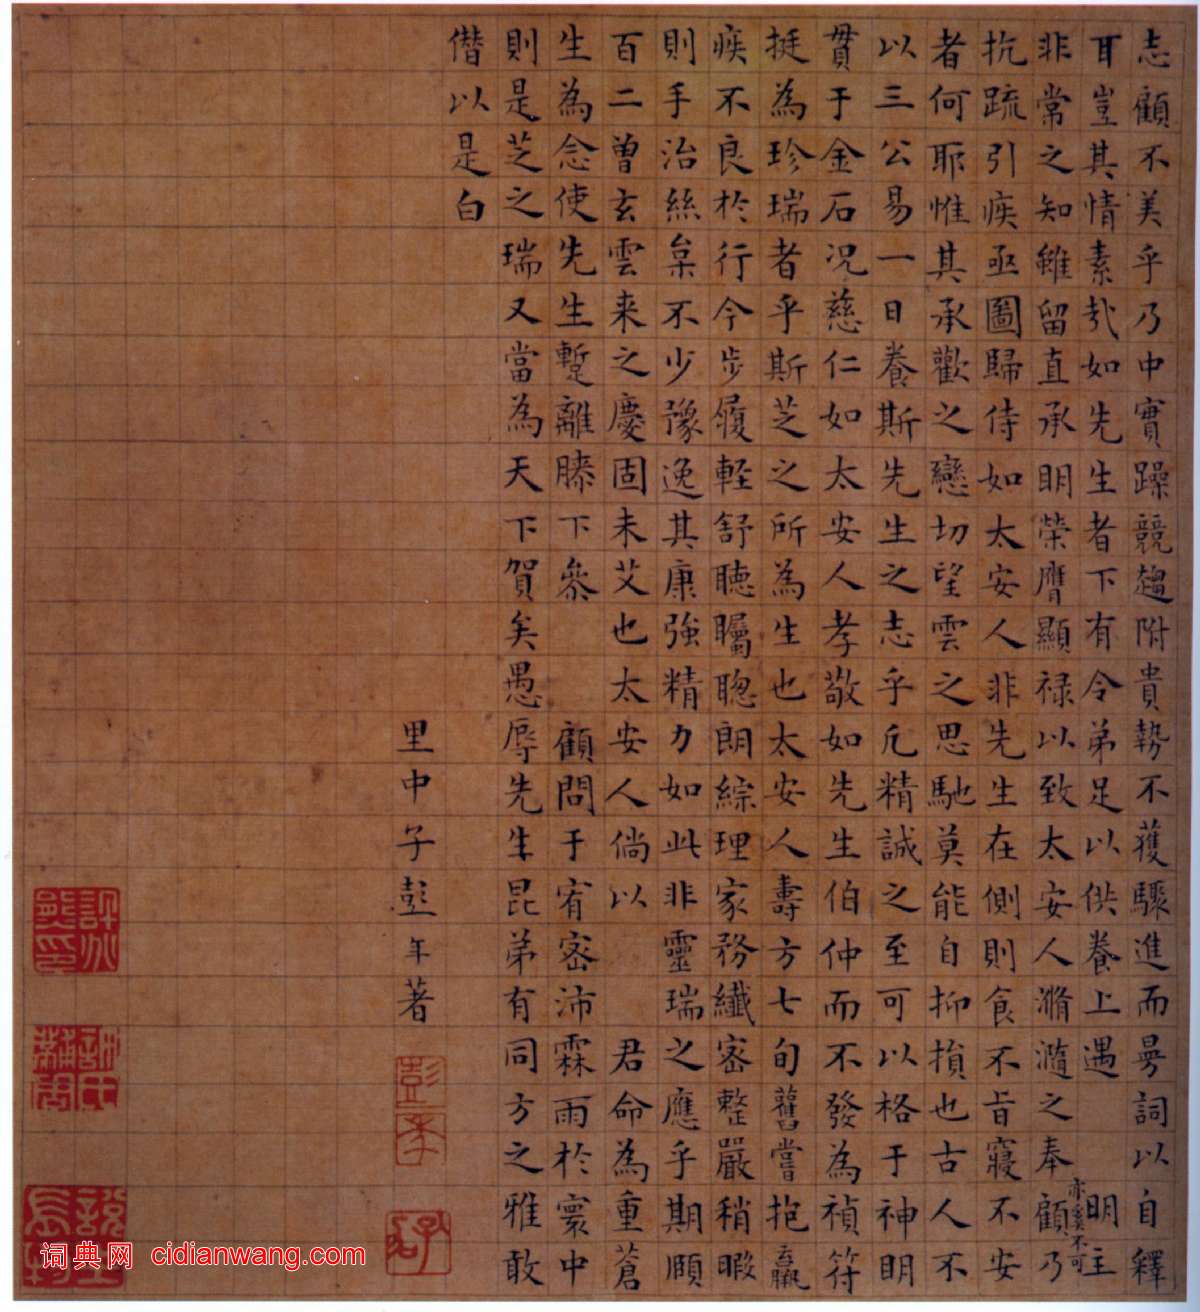 志顧不美乎乃中實躁競趨附貴勢不獲驟進而㝵詞以自釋
耳豈其情素哉如先生者下有令弟足以供養上遇 明主
非常之知雖留直承明榮膺顯祿以致太安人滫瀡之奉顧乃
亦奚不可
抗疏引疾亟圖歸侍如太安人非先生在側則食不旨寢不安
者何耶惟其承歡之戀切望雲之思馳莫能自抑損也古人不
以三公易一日養斯先生之志乎凡精誠之至可以格于神明
貫于金石况慈仁如太安人孝敬如先生伯仲而不發為禎符
挺為珍瑞者乎斯芝之所為生也太安人壽方七旬舊嘗抱羸
疾不良於行今步履輕舒聽矚聰朗綜理家務纖密整嚴稍暇
則手治絲枲不少豫逸其康強精力如此非靈瑞之應乎期頤
百二曾玄雲来之慶固未艾也太安人倘以 君命為重蒼
生為念使先生蹔離膝下叅 顧問于宥密沛霖雨於寰中
則是芝之瑞又當為天下賀矣愚辱先生昆弟有同方之雅敢
僭以是白
里中子彭年著
彭年
詞典网 cidianwang.com